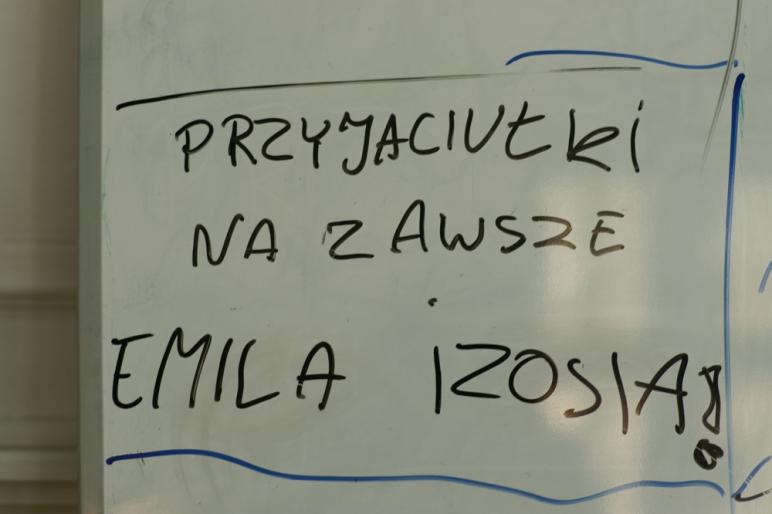 PRZYJACIUŁki
NA ZAWSZE
EMILA i ZOSIA!